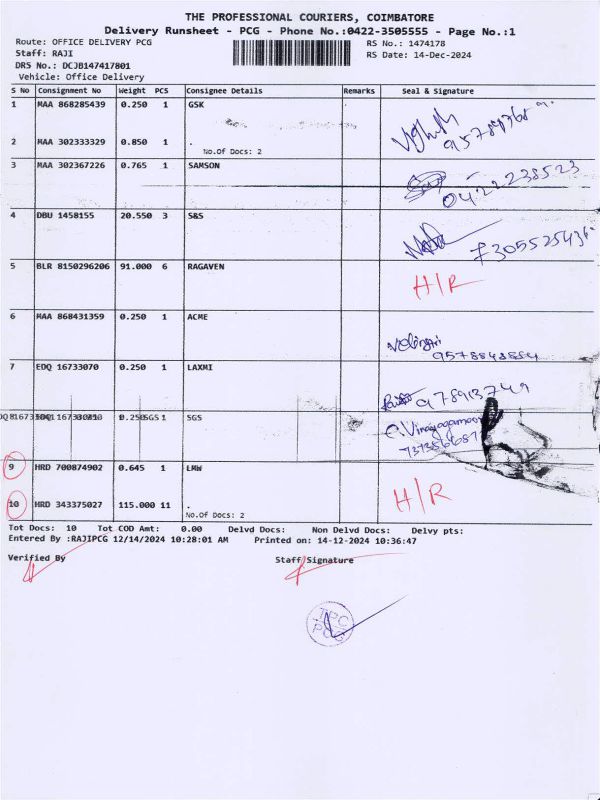 THE PROFESSIONAL COURIERS, COIMBATORE
Delivery Runsheet - PCG - Phone No.:0422-3505555 - Page No.:1
Route: OFFICE DELIVERY PCG
RS No.: 1474178
Staff: RAJI
RS Date: 14-Dec-2024
DRS No.: DCJB147417801
Vehicle: Office Delivery
S No Consignment No Weight PCS Consignee Details Remarks Seal & Signature
1 MAA 868285439 0.250 1 GSK
2 MAA 302333329 0.850 1 .
No.Of Docs: 2
3 MAA 302367226 0.765 1 SAMSON
0422238523
4 DBU 1458155 20.550 3 S&S
5 BLR 8150296206 91.000 6 RAGAVEN
H/R
6 MAA 868431359 0.250 1 ACME
7 EDQ 16733070 0.250 1 LAXMI
SGS
9 HRD 700874902 0.645 1 LMW
10 HRD 343375027 115.000 11 .
H/R
No.Of Docs: 2
Tot Docs: 10 Tot COD Amt: 0.00 Delvd Docs: Non Delvd Docs: Delvy pts:
Entered By :RAJIPCG 12/14/2024 10:28:01 AM Printed on: 14-12-2024 10:36:47
Verified By Staff Signature